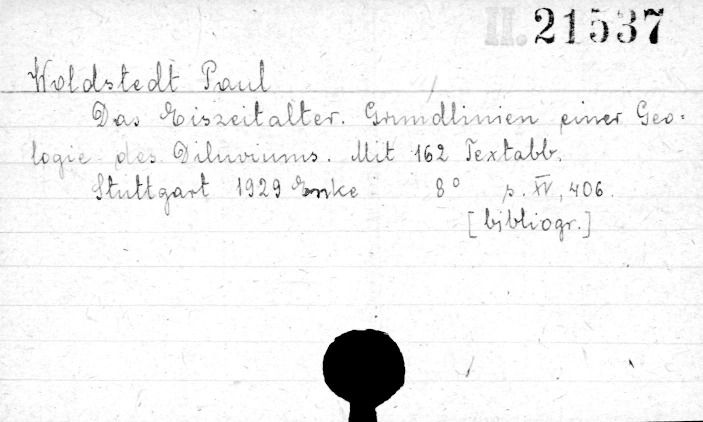 II. 21537
Woldstedt Paul
Das Eiszeitalter. Grundlinien einer Geo-
logie des Diluviums. Mit 162 Textabb.
Stuttgart 1929 Enke 8° p. XV, 406.
[bibliogr.]